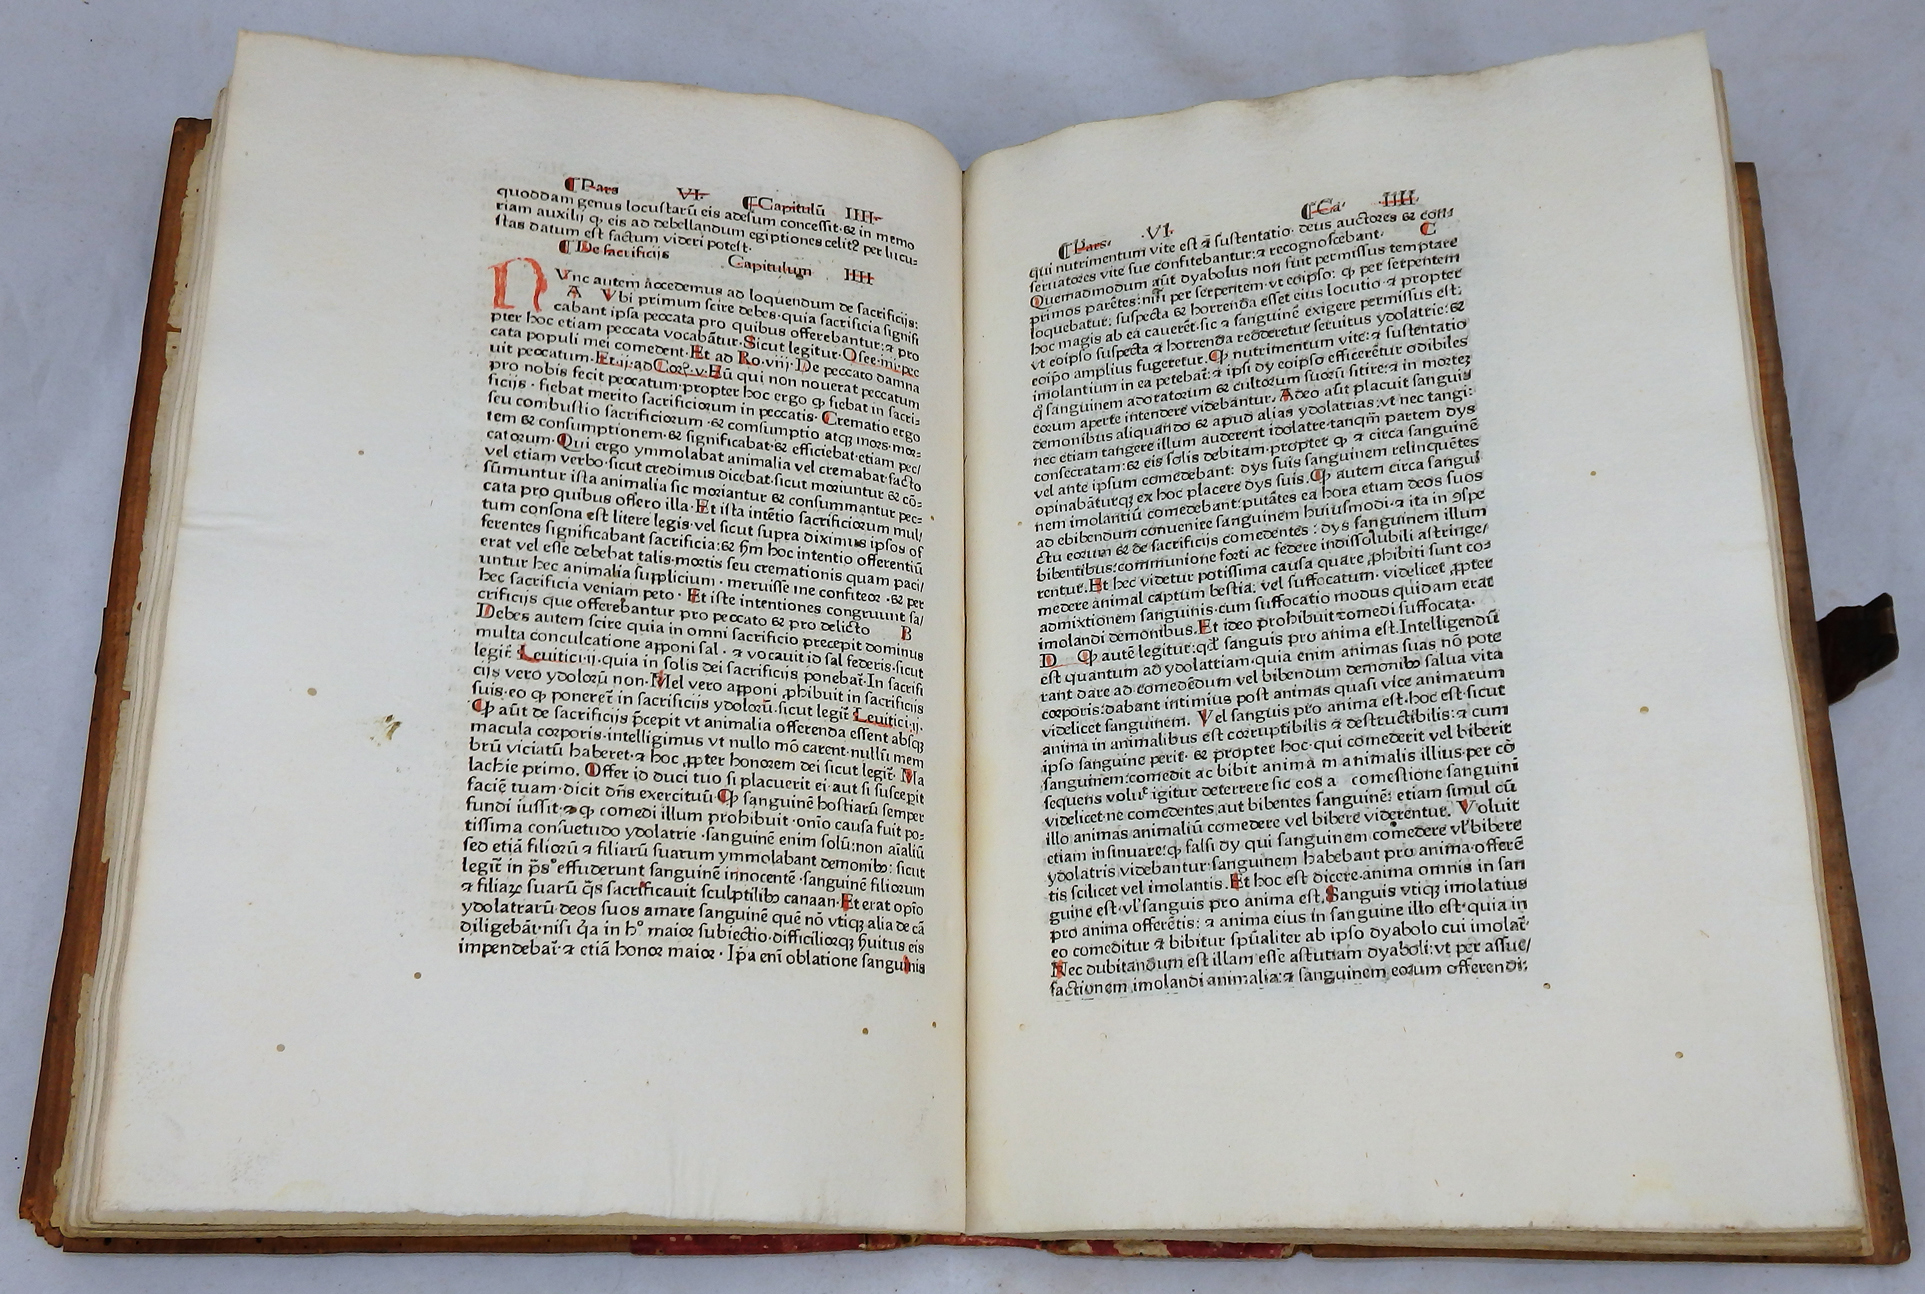 ¶Pars VI· ¶Capitulū IIII·
quoddam genus locustarū eis ad esum concessit·& in memo
riam auxilij q̇ eis ad debellandum egiptiones celit⁹ per lucu⸗
stas datum est factum videri potest·
¶De sacrificijs Capitulum IIII
NVnc autem accedemus ad loquendum de sacrificijs:
A Vbi primum scire debes·quia sacrificia signifi
cabant ipsa peccata pro quibus offerebantur:⁊ pro
pter hoc etiam peccata vocabātur·Sicut legitur·Osee·iiij·pec
cata populi mei comedent·Et ad Ro·viij·De peccato damna
uit peccatum·Et·ij·ad Coꝝ·v·Eū qui non nouerat peccatum
pro nobis fecit peccatum·propter hoc ergo ꝙ fiebat in sacri⸗
ficijs·fiebat merito sacrificiorum in peccatis·Crematio ergo
seu combustio sacrificiorum·& comsumptio atqꝫ mors·mor⸗
tem & consumptionem·& significabat·& efficiebat·etiam pec/
catorum·Qui ergo ymmolabat animalia vel cremabat·facto
vel etiam verbo·sicut credimus dicebat·sicut moriuntur & cō⸗
ssimuntur ista animalia sic moriantur & consummantur pec⸗
cata pro quibus offero illa·Et ista intētio sacrificiorum mul/
tum consona est litere legis·vel sicut supra diximus ipsos of
ferentes significabant sacrificia:& hm̄ hoc intentio offerentiū
erat vel esse debebat talis·mortis seu cremationis quam paci/
untur hec animalia supplicium·meruisse me confiteor·& per
hec sacrificia veniam peto·Et iste intentiones congruunt sa/
crificijs que offerebantur pro peccato & pro delicto B
Debes autem scire quia in omni sacrificio precepit dominus
multa conculcatione apponi sal·⁊ vocauit id sal federis·sicut
legit̄ Leuitici·ij·quia in solis dei sacrificijs ponebat̄·In sacrifi
cijs vero ydolorū non·Mel vero apponi ꝓhibuit in sacrificijs
suis·eo ꝙ poneret̄ in sacrificijs ydolorū·sicut legit̄ Leuitici·ij·
Ꝙ aūt de sacrificijs p̄cepit vt animalia offerenda essent absqꝫ
macula corporis·intelligimus vt nullo mō carent·nullū mem
brū viciatū haberet·⁊ hoc ꝓpter honorem dei sicut legit̄ Ma
lachie primo·Offer id duci tuo si placuerit ei·aut si susceperit
faciē tuam·dicit dn̄s exercituū Ꝙ sanguinē hostiarū semper
fundi iussit·⁊ ꝙ comedi illum prohibuit·onīo causa fuit po⸗
tissima consuetudo ydolatrie·sanguinē enim solū:non aīaliū
sed etiā filiorū ⁊ filiarū suarum ymmolabant demonibꝰ: sicut
legit̄ in p̄s°effuderunt sanguinē innocentē·sanguinē filiorum
⁊ filiaꝝ suarū q̄s sacrificauit sculptilibꝰ canaan·Et erat opīo
ydolatrarū·deos suos amare sanguinē quē nō vtiqꝫ alia de cā
diligebāt·nisi q̇a in h° maior subiectio·difficiliorqꝫ ꝓuitus eis
impendebat̄·⁊ etiā honor maior·Ip̄a enī oblatione sanguinis
¶Pars· ·VI· ¶Ca· IIII·
qui nutrimentum vite est ⁊ sustentatio·deus auctores & cons
seruatores vite sue confitebantur:⁊ recognoscebant· C
Quemadmodum aūt dyabolus non fuit permissus temptare
primos parētes:nisi per serpentem·vt eoipso: ꝙ per serpentem
loquebatur: suspecta & horrenda esset eius locutio ⁊ propter
hoc magis ab ea cauerēt·sic ⁊ sanguinē exigere permissus est:
vt eoipso suspecta ⁊ horrenda redderetur seruitus ydolatrie·&
eoip̄o amplius fugeretur·Ꝙ nutrimentum vite:⁊ sustentatio
imolantium in ea petebat̄:⁊ ipsi dy eoipso efficerētur odibiles
q̇ sanguinem adoratorum & cultorum suorū sitire:⁊ in mortez
eorum aperte intendere videbantur·Adeo aūt placuit sanguis
demonibus aliquando & apud alias ydolatrias:vt nec tangi:
nec etiam tangere illum auderent idolatre·tanqm̄ partem dys
consecratam:& eis solis debitam·propter ꝙ ⁊ circa sanguinē
vel ante ipsum comedebant: dys suis sanguinem relinquētes
opinabāturqꝫ ex hoc placere dys suis·Ꝙ autem circa sangui
nem imolantiū comedebant:putātes ea hora etiam deos suos
ad ebibendum conuenire sanguinem huiusmodi·⁊ ita in ꝯspe
ctu eorum & de sacrificijs comedentes : dys sanguinem illum
bibentibus:communione forti ac federe indissolubili astringe/
rentur·Et hec videtur potissima causa quare ꝓhibiti sunt co⸗
medere animal captum bestia: vel suffocatum·videlicet ꝓpter
admixtionem sanguinis·cum suffocatio modus quidam erat
imolandi demonibus·Et ideo prohibuit comedi suffocata·
D Ꝙ autē legitur:qd̄ sanguis pro anima est·Intelligendū
est quantum ad ydolattiam·quia enim animas suas nō pote
rant dare ad comedēdum vel bibendum demonibꝰ salua vita
corporis:dabant intimius post animas quasi vice animarum
videlicet sanguinem. Vel sanguis pro anima est·hoc est·sicut
anima in animalibus est corruptibilis ⁊ destructibilis:⁊ cum
ipso sanguine perit·& propter hoc·qui comederit vel biberit
sanguinem:comedit ac bibit anima m animalis illius·per cō
sequens voluᵗ igitur deterrere sic eos a comestione sanguini
videlicet·ne comedentes aut bibentes sanguinē: etiam simul cū
illo animas animaliū comedere vel bibere viderentur· Voluit
etiam insinuare:ꝙ falsi dy qui sanguinem comedere vl̄ bibere
ydolatris videbantur·sanguinem habebant pro anima·offerē
tis scilicet vel imolantis·Et hoc est dicere·anima omnis in san
guine est·vl̄ sanguis pro anima est·Sanguis vtiqꝫ imolatius
pro anima offerētis: ⁊ anima eius in sanguine illo est·quia in
eo comeditur ⁊ bibitur spūaliter ab ipso dyabolo cui imolat̄·
Nec dubitandum est illam esse astutiam dyaboli:vt per assue/
factionem imolandi animalia:⁊ sanguinem eorum offerendi: